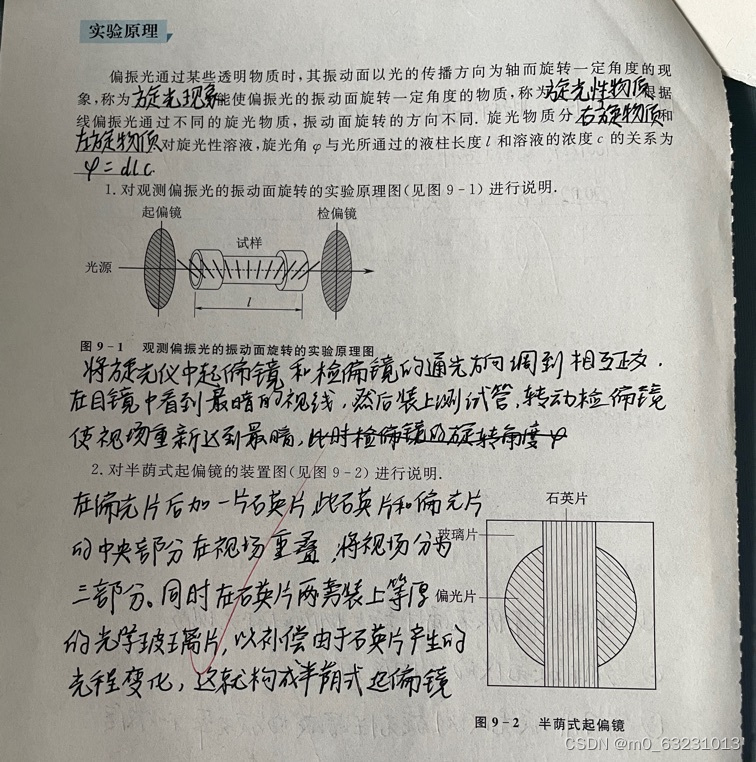 实验原理
偏振光通过某些透明物质时，其振动面以光的传播方向为轴而旋转一定角度的现
象，称为旋光现象能使偏振光的振动面旋转一定角度的物质，称为旋光性物质根据
线偏振光通过不同的旋光物质，振动面旋转的方向不同．旋光物质分右旋物质和
左旋物质对旋光性溶液，旋光角 φ 与光所通过的液柱长度 l 和溶液的浓度 c 的关系为
φ = αlc
1. 对观测偏振光的振动面旋转的实验原理图（见图 9－1）进行说明．
起偏镜 检偏镜
试样
光源
l
图 9－1 观测偏振光的振动面旋转的实验原理图
将旋光仪中起偏镜和检偏镜的通光方向调到相互正交．
在目镜中看到最暗的视线，然后装上测试管，转动检偏镜
使视场重新达到最暗，此时检偏镜的旋转角度φ
2. 对半荫式起偏镜的装置图（见图 9－2）进行说明．
石英片
在偏光片后加一片石英片，此石英片和偏光片
玻璃片
的中央部分在视场重叠，将视场分为
偏光片
三部分。同时在石英片两旁装上等厚
的光学玻璃片，以补偿由于石英片产生的
光程变化，这就构成半荫式起偏镜
图 9－2 半荫式起偏镜
CSDN @m0_63231013